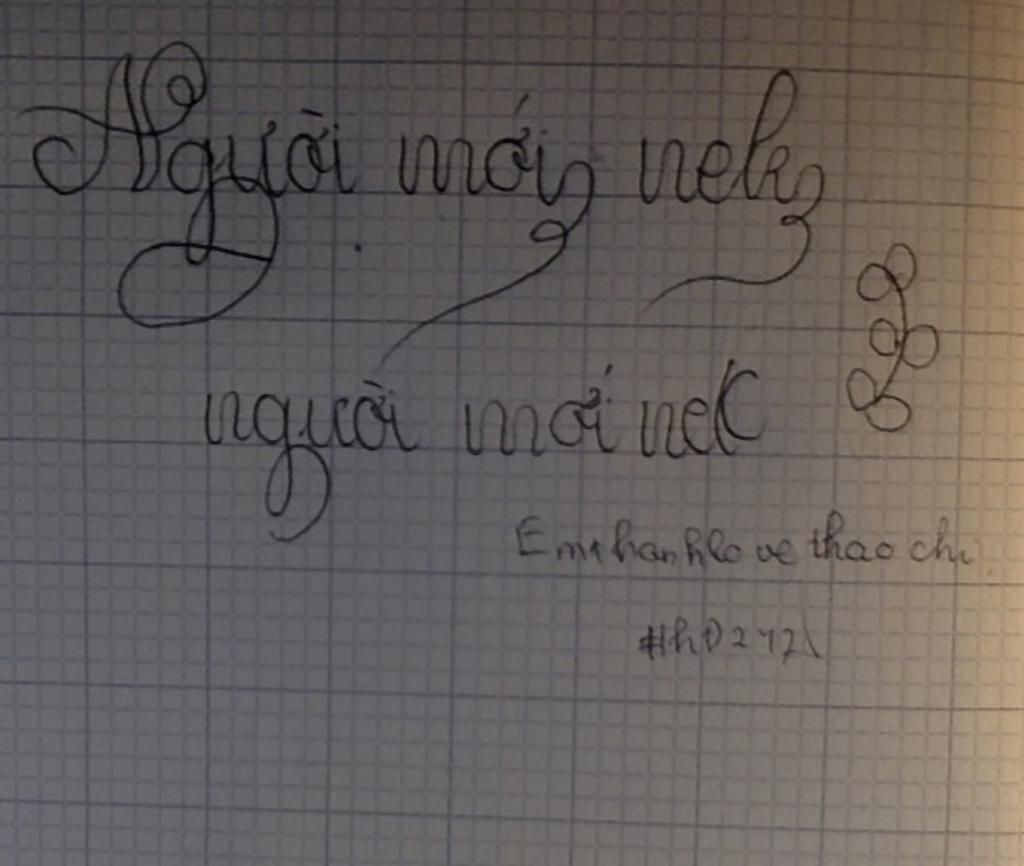 Người mới nek
người mới nek
Em thanh love thao chi